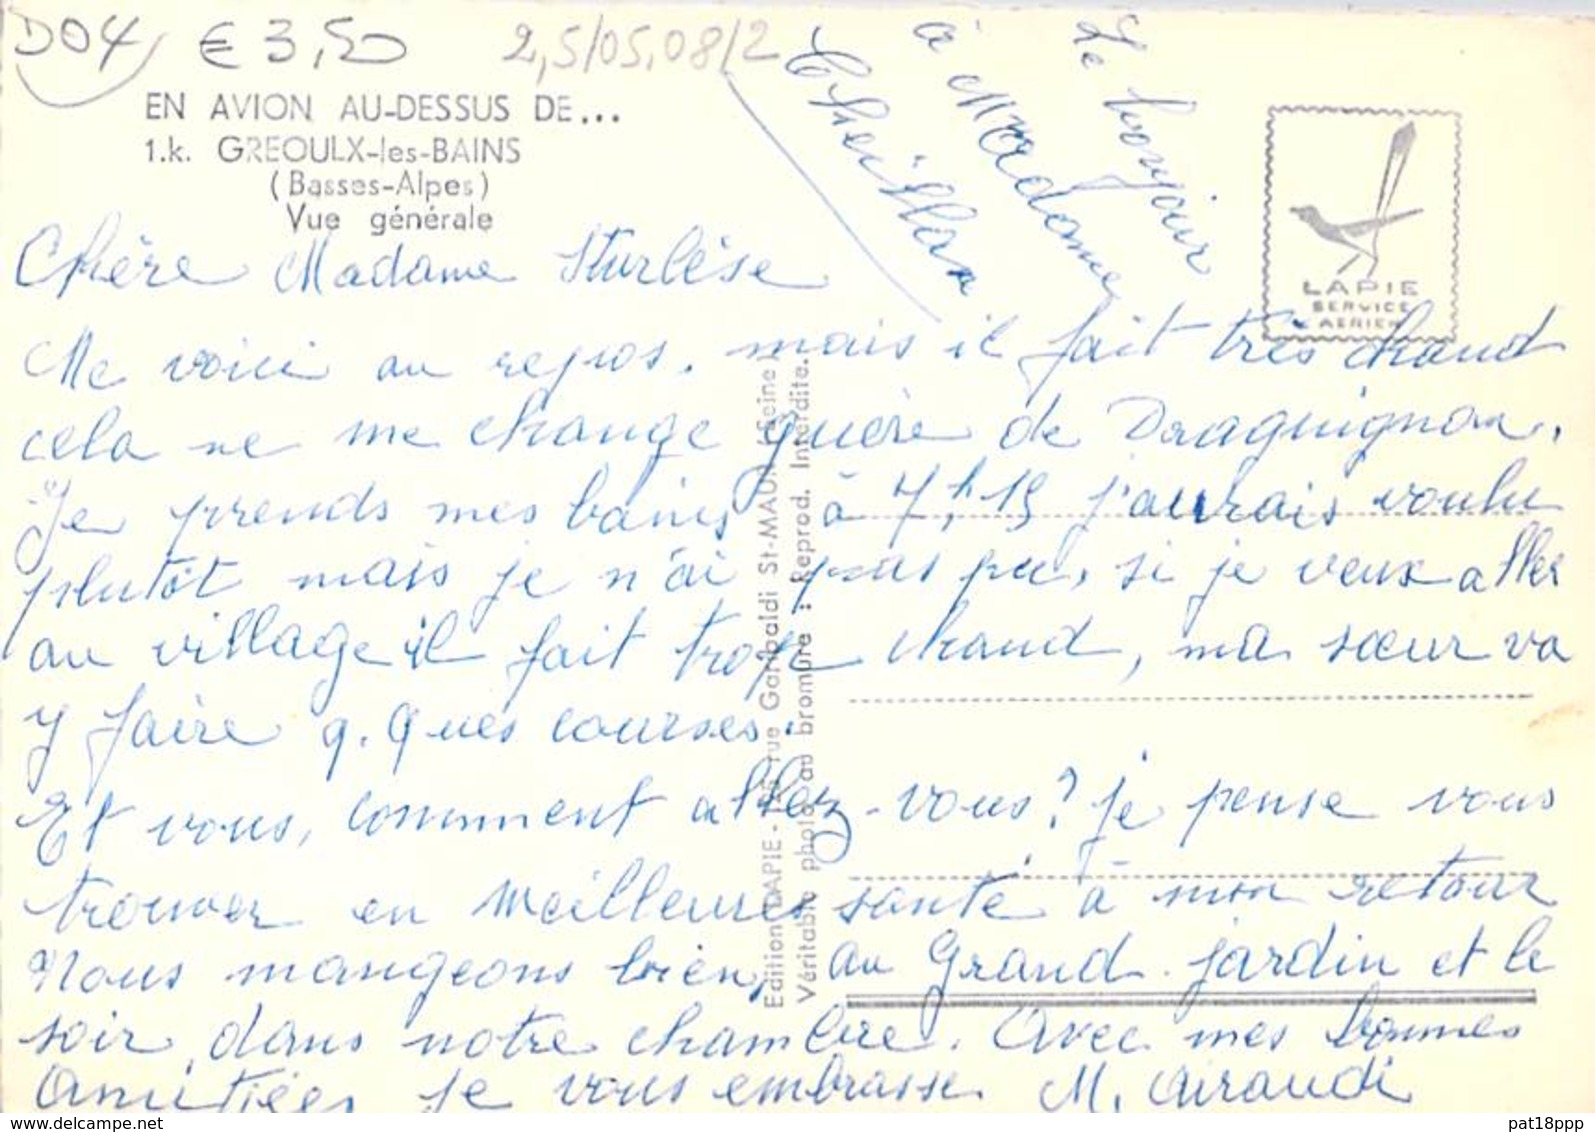 D04 € 3,50 2,5/05,08/2
EN AVION AU-DESSUS DE...
1.k. GREOULX-les-BAINS
(Basses-Alpes)
Vue générale
Le bonjour
à Madame
Cheillan
LAPIE
SERVICE
AERIEN
Chère Madame Sturlèse
Me voici au repos, mais il fait très chaud
cela ne me change guère de Draguignan.
Je prends mes bains à 7h,15 j'aurais voulu
plutôt mais je n'ai pas pu, si je veux aller
au village il fait trop chaud, ma sœur va
y faire q.ques courses.
Et vous, comment allez-vous? je pense vous
trouver en meilleures santé à mon retour
Nous mangeons bien, au Grand jardin et le
soir, dans notre chambre. Avec mes bonnes
Amitiées je vous embrasse M. Giraudi
Edition LAPIE - rue Garibaldi St-MAUR (Seine)
Véritable photo au bromure : Reprod. Interdite.
www.delcampe.net
pat18ppp